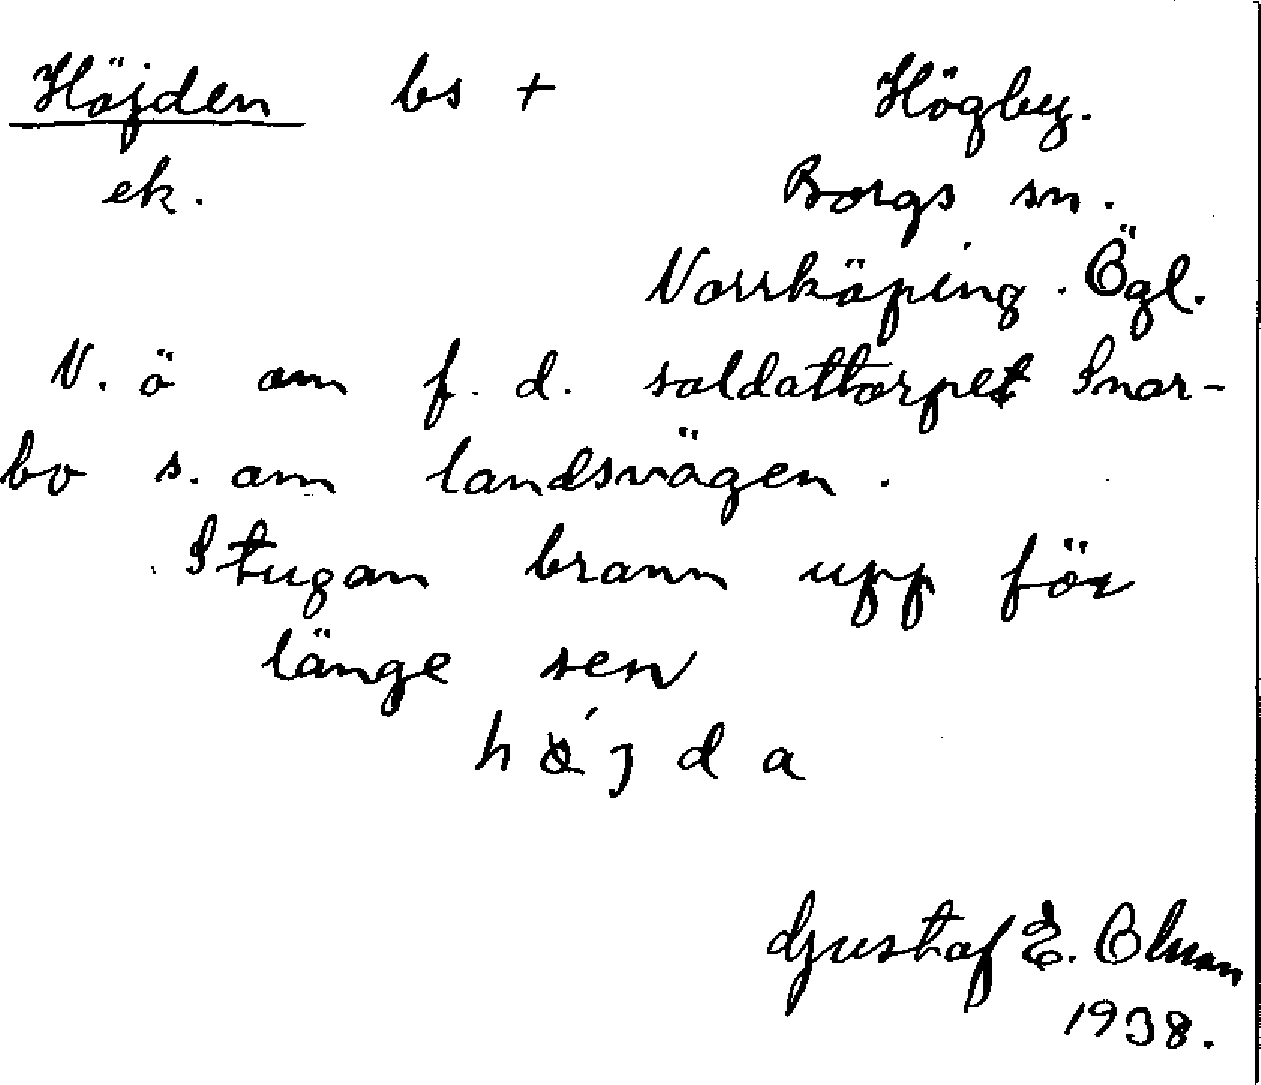 Höjden bs + Högby.
ek. Borgs sn.
Norrköping. Ögl.
N. ö om f. d. soldattorpet Snar-
bo s. om landsvägen.
Stugan brann upp för
länge sen
d a
Gustaf E.
1938.